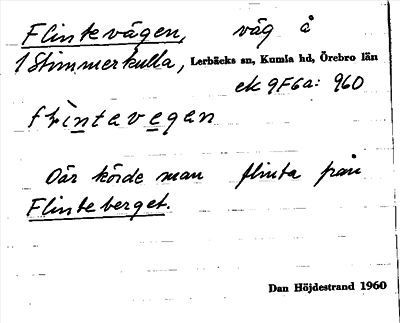 Flintevägen, väg å
1 Stimmerkulla, Lerbäcks sn, Kumla hd, Örebro län
ek 9F6a: 960
flìntavegan
Där körde man flinta från
Flinteberget.
Dan Höjdestrand 1960